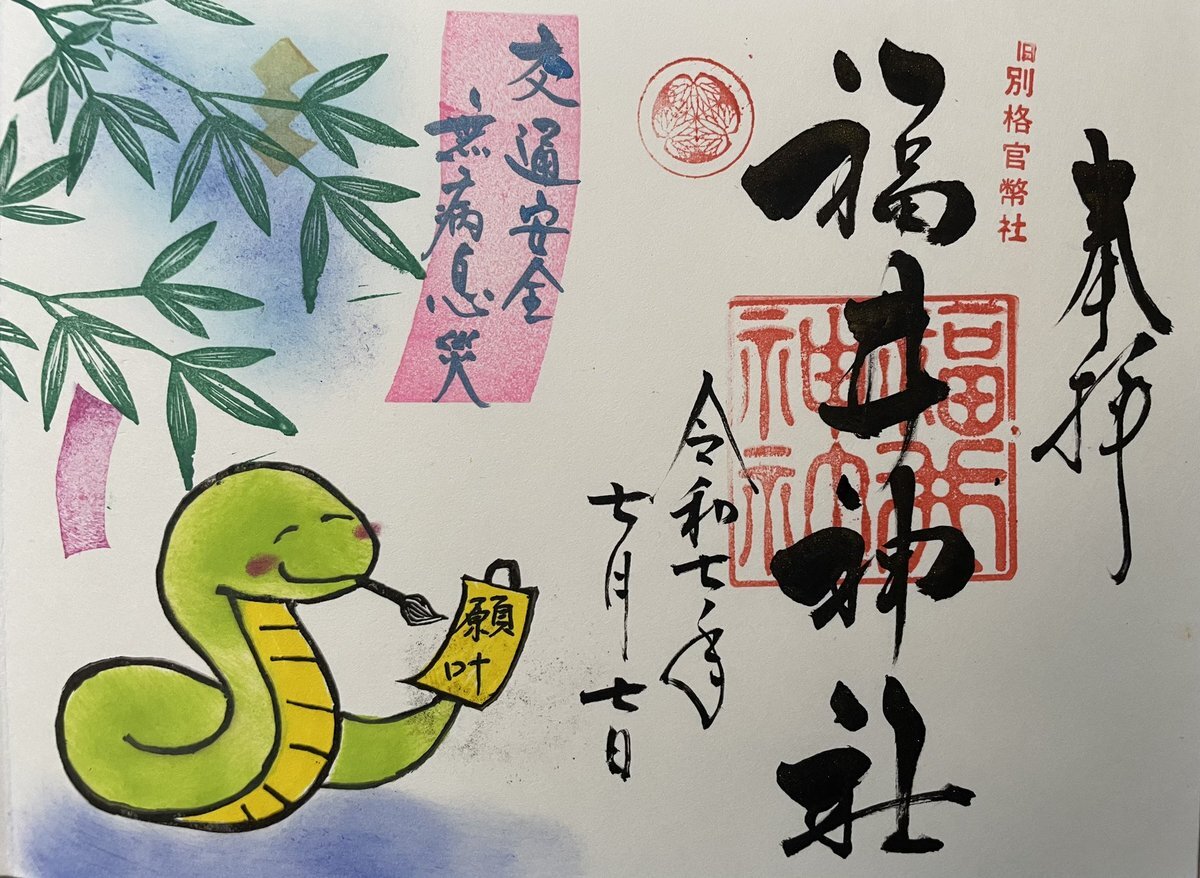 奉拝
旧別格官幣社
福井神社
福井
神社
令和七年
七月七日
交通安全
無病息災
願
叶